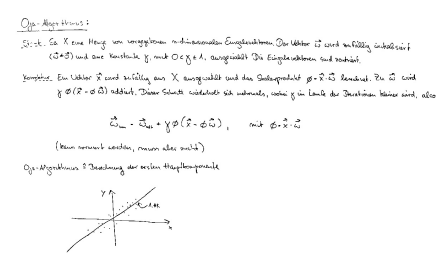 Oja-Algorithmus:
Start: Sei X eine Menge von vorgegebenen n-dimensionalen Eingabevektoren. Der Vektor w⃗ wird zufällig initialisiert
(w⃗≠0⃗) und eine Konstante γ, mit 0<γ≤1, ausgewählt. Die Eingabevektoren sind zentriert.
Korrektur: Ein Vektor x⃗ wird zufällig aus X ausgewählt und das Skalarprodukt ϕ=x⃗·w⃗ berechnet. Zu w⃗ wird
γϕ(x⃗-ϕw⃗) addiert. Dieser Schritt wiederholt sich mehrmals, wobei γ im Laufe der Iterationen kleiner wird, also
w⃗neu = w⃗alt + γϕ(x⃗-ϕw⃗), mit ϕ=x⃗·w⃗
(kann normiert werden, muss aber nicht)
Oja-Algorithmus ≙ Berechnung der ersten Hauptkomponente
y
1. HK
x